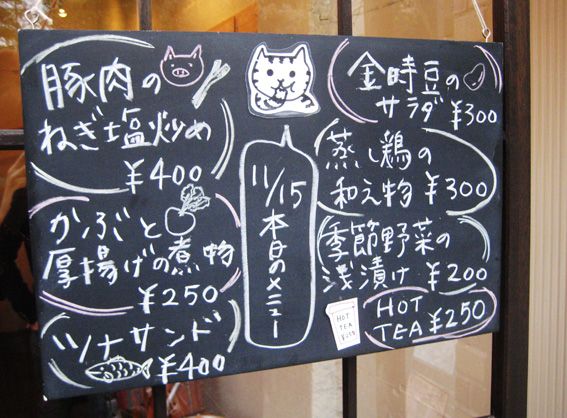 豚肉の
ねぎ塩炒め
¥400
かぶと
厚揚げの煮物
¥250
ツナサンド
¥400
11/15
本日のメニュー
金時豆の
サラダ ¥300
蒸し鶏の
和え物 ¥300
季節野菜の
浅漬け ¥200
HOT
TEA ¥250
HOT
TEA